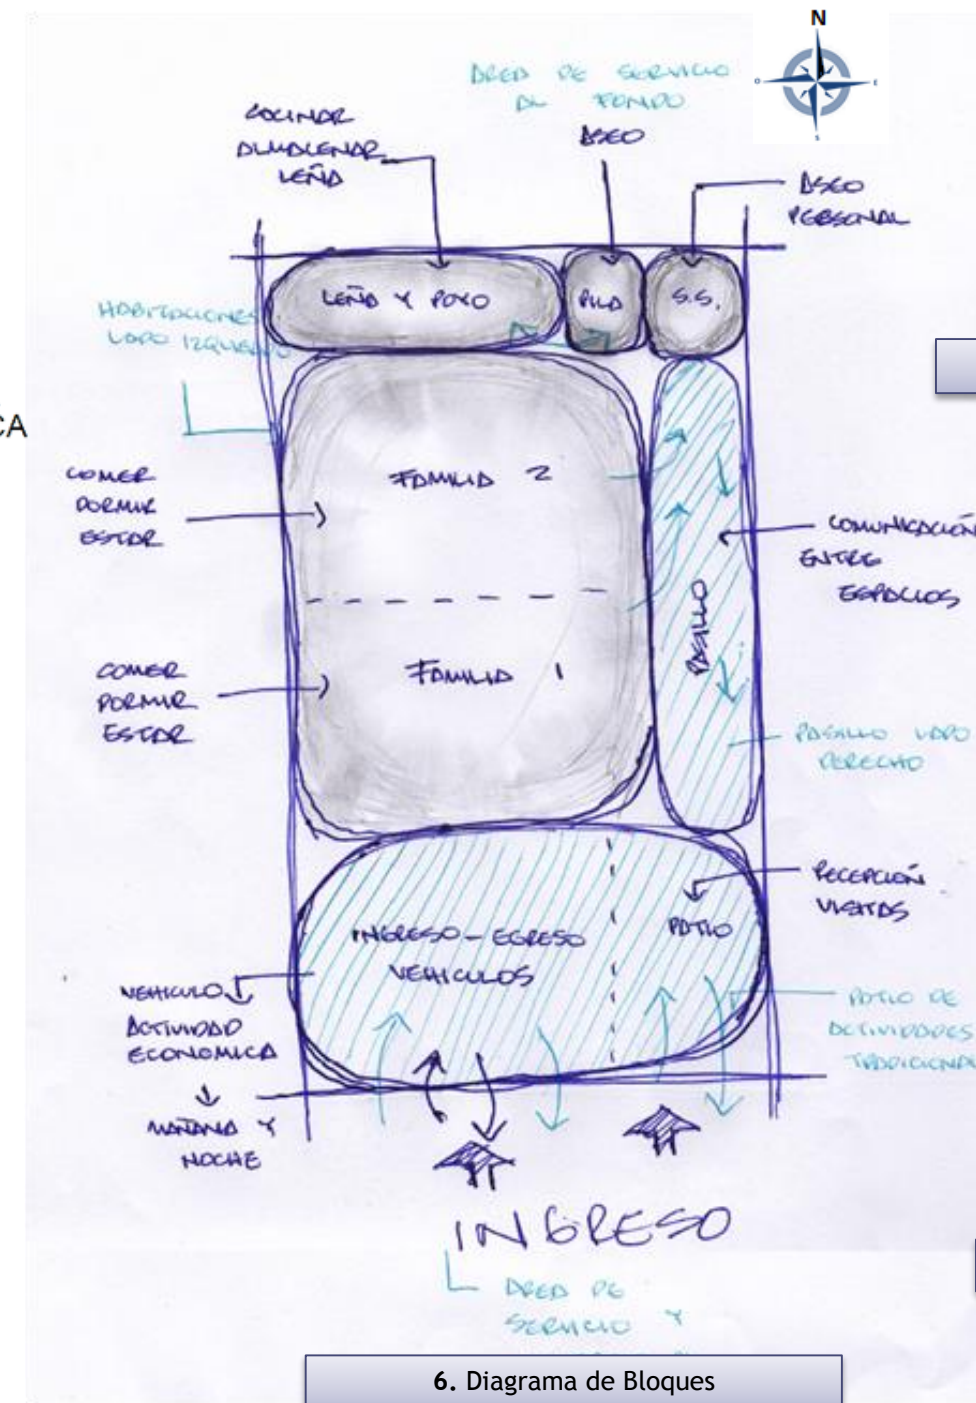 N
AREA DE SERVICIO
AL FONDO
COCINAR
ALMACENAR
LEÑA
ASEO
ASEO
PERSONAL
LEÑA Y POYO
PILA
S.S.
HABITACIONES
LADO IZQUIERDO
CA
COMER
DORMIR
ESTAR
FAMILIA 2
COMUNICACIÓN
ENTRE
ESPACIOS
PASILLO
COMER
DORMIR
ESTAR
FAMILIA 1
PASILLO LADO
DERECHO
RECEPCIÓN
VISITAS
INGRESO - EGRESO
VEHICULOS
PATIO
VEHICULO
ACTIVIDAD
ECONOMICA
MAÑANA Y
NOCHE
PATIO DE
ACTIVIDADES
TRADICIONAL
INGRESO
AREA DE
SERVICIO Y
6. Diagrama de Bloques